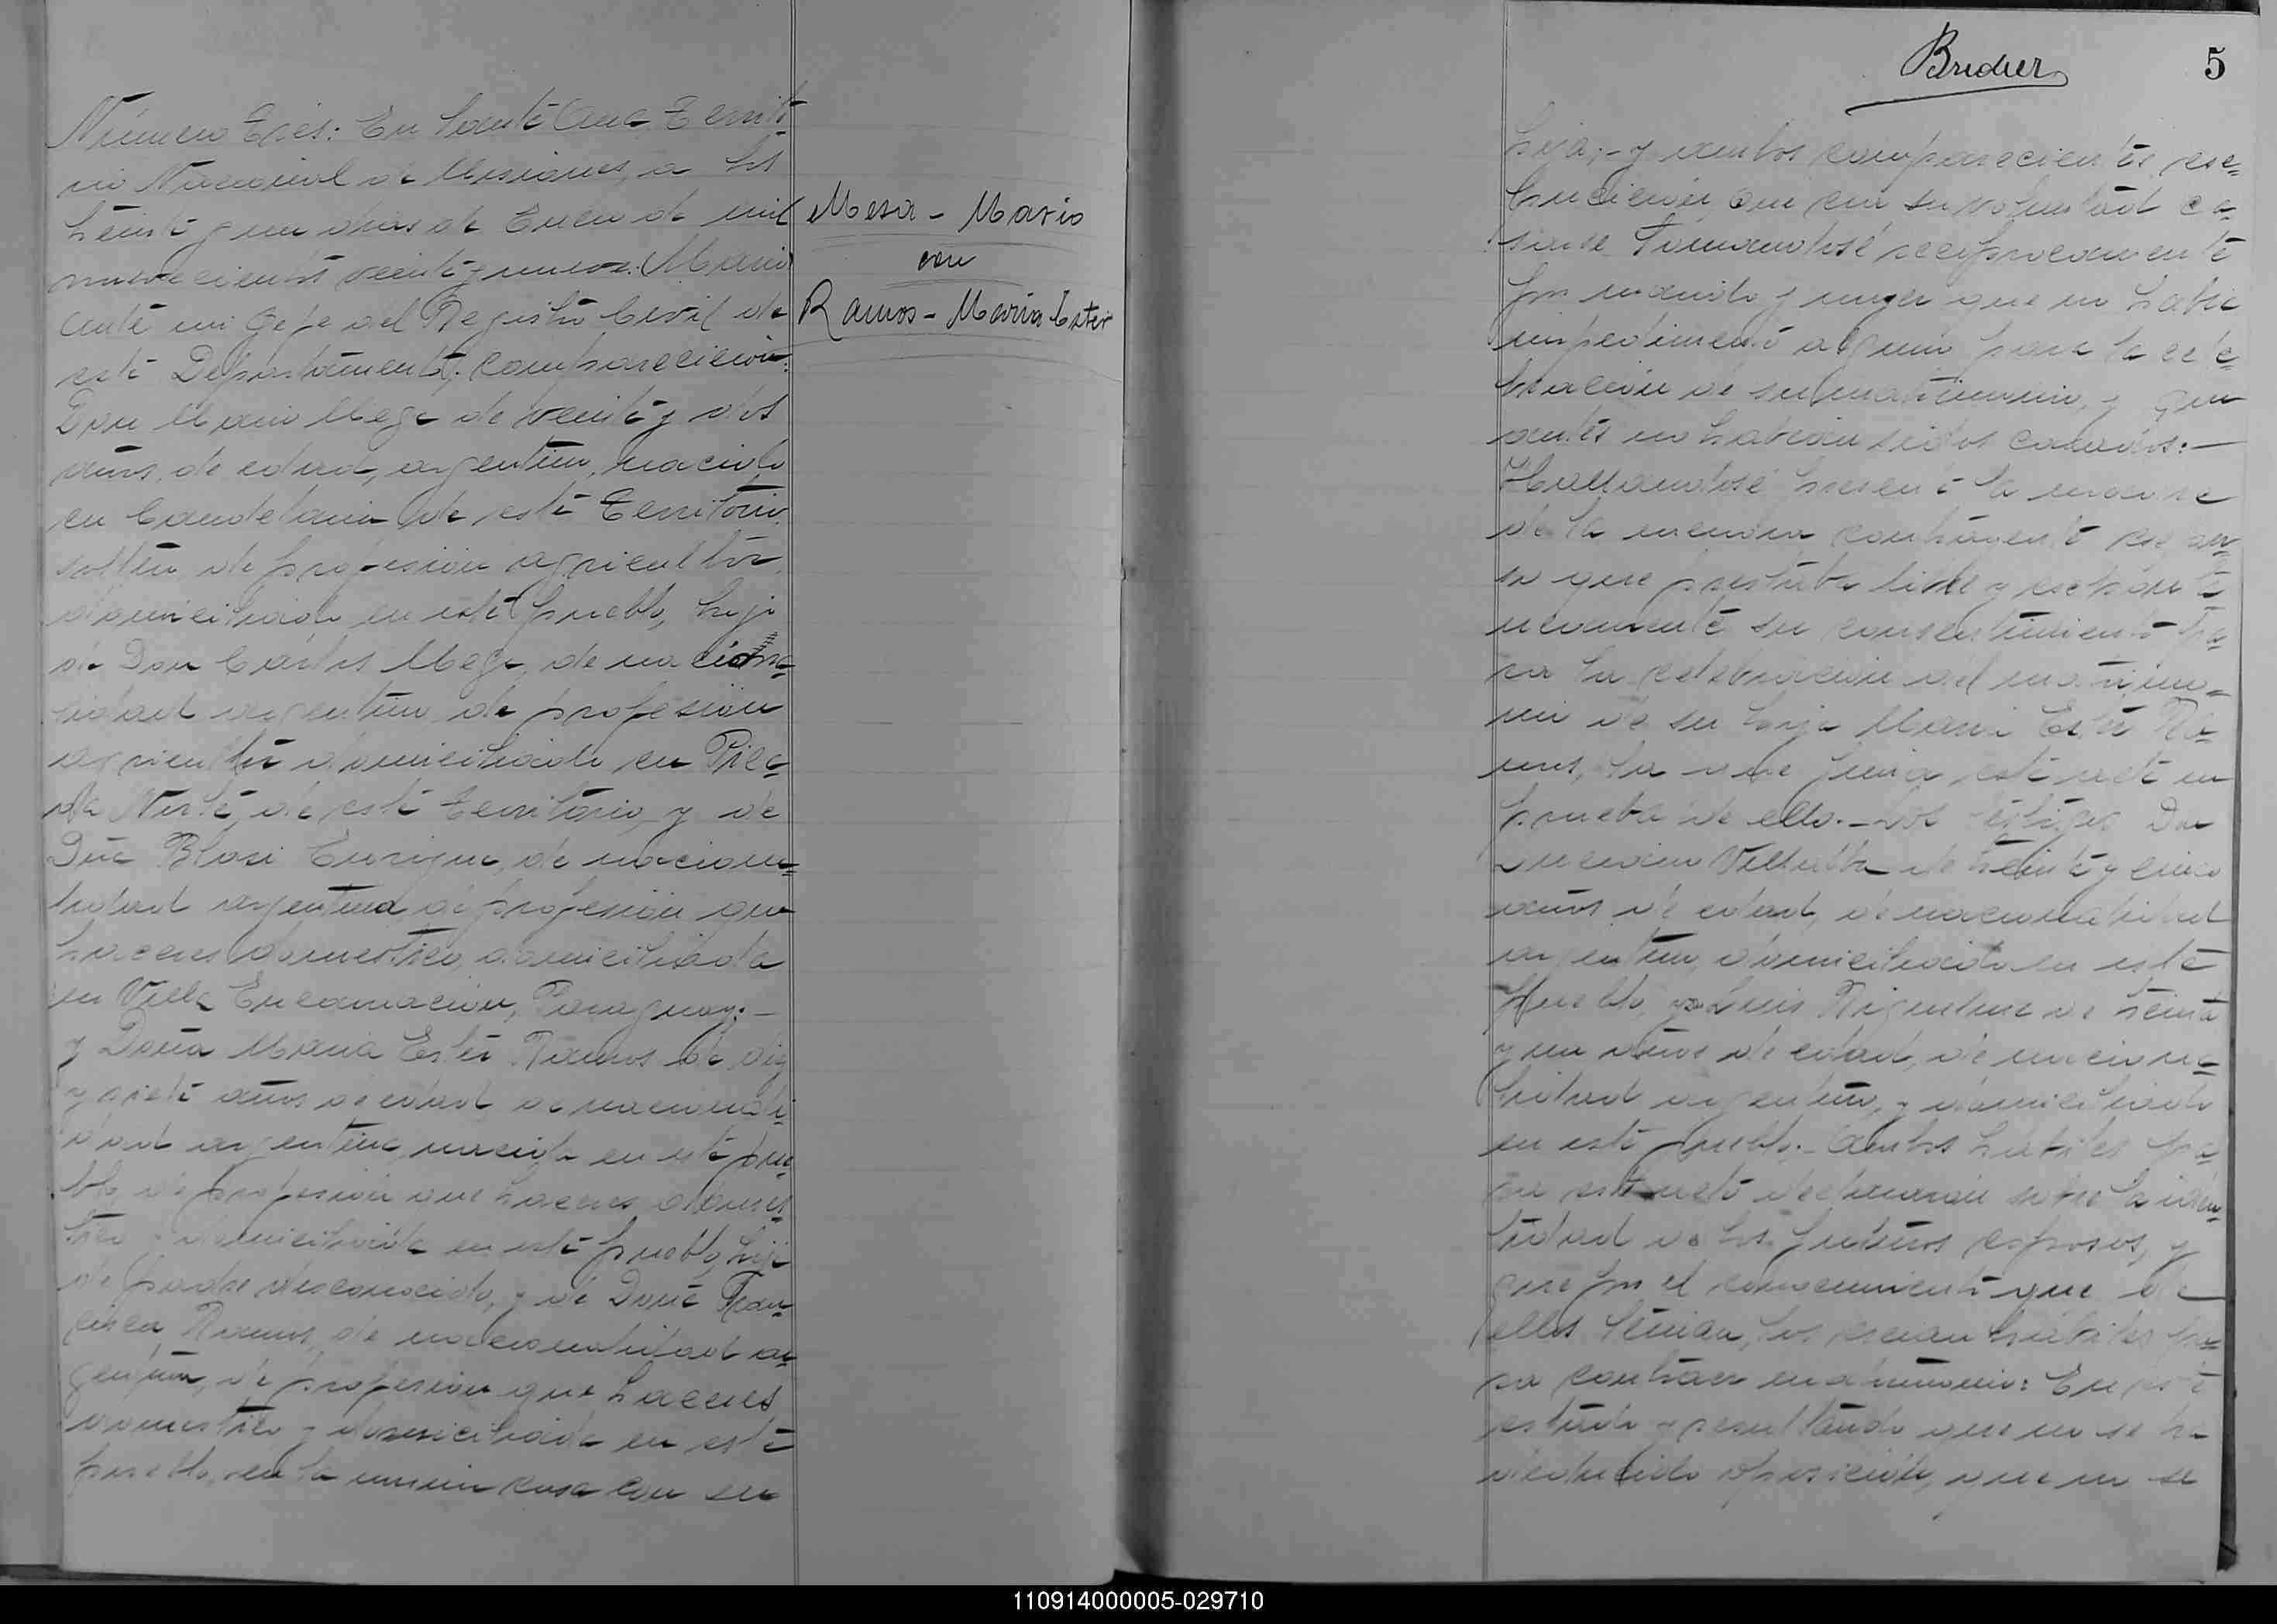 Número Trés: En Santa Ana, Territo-
rio Nacional de Misiones, a los
treinta y un dias de Enero de mil
nuevecientos veinte y nueve:
ante mi Gefe del Registro Civil de
este Departamento; comparecieron:
Don Mario Mesa de veinte y dos
años, de edad, argentino, nacido
en Candelaria de este Territorio,
soltero, de profesion agricultor,
domiciliado en este pueblo, hijo
de Don Carlos Mesa, de naciona-
lidad argentino, de profesion
agricultor domiciliado en
de este Territorio, y de
Dña Enrique, de naciona-
lidad argentina de profesion que
haceres domestico, domiciliada
en Villa Encarnacion, Paraguay:—
y Doña Maria Ester Ramos de diez
y siete años de edad de nacionali-
dad argentina, nacida en este pue-
blo, de profesion que haceres domes-
tico y domiciliada en este pueblo, hija
de padre desconocido, y de Doña Fran-
cisca Ramos, de nacionalidad ar-
gentina, de profesion que haceres
domestico y domiciliada en este
pueblo, en la misma casa con su
Mesa - Mario
con
Ramos - Maria Ester
5
hija;- y ambos comparecientes, ex-
pucieron, que era su voluntad ca-
sarse Tomandosé reciprocamente
por marido y muger que no habia
impedimento alguno para la cele-
bracion de su matrimonio, y que
antes no habian sidos casados:—
Hallandosé presente la madre
de la menor contrayente expre-
so que prestaba libre y
su consentimiento pa-
ra la celebracion del matrimo-
nio de su hija Maria Ester Ra-
mos, la que firma este acta en
prueba de ello.— Los testigos Don
Luciano Villalba de treinta y cinco
años de edad, de nacionalidad
argentino, domiciliado en este
Pueblo, y Luis de treinta
y un años de edad, de naciona-
lidad argentino, y domiciliado
en este pueblo.- Ambos habiles pa-
ra este acto declararon sobre la iden-
tidad de los futuros esposos, y
que por el conocimiento que de
ellos tenian, los creian habiles pa-
ra contraer matrimonio: En este
estado y resultando que no se ha
deducido oposicion, que no se
110914000005-029710